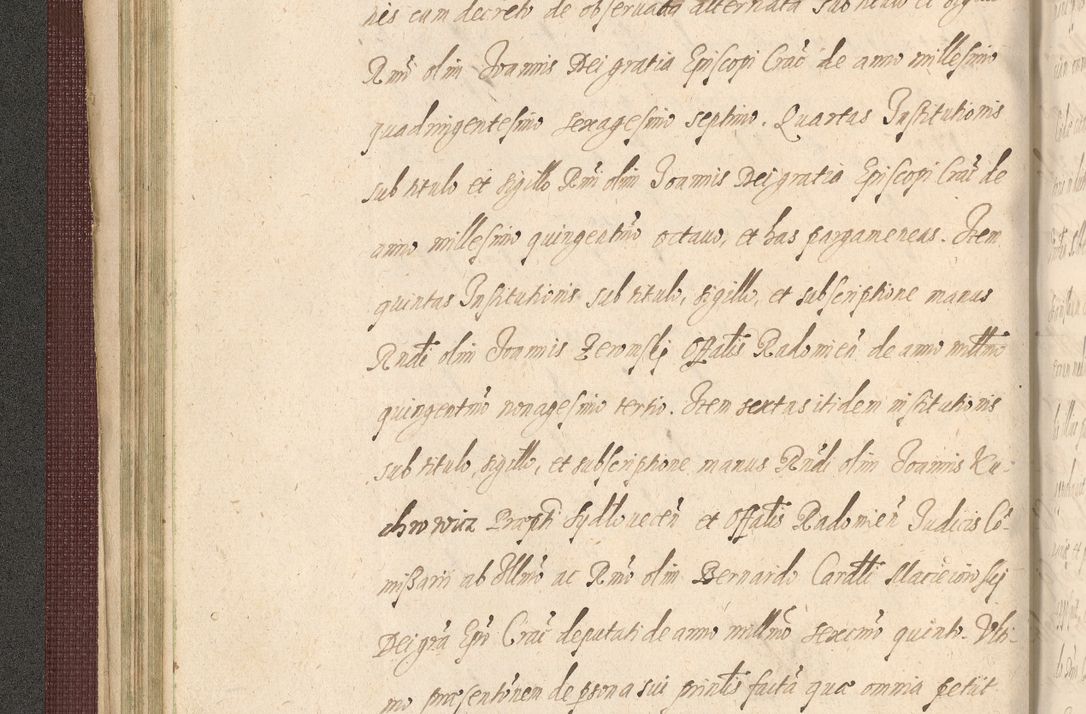 nis cum decreto de observata alternata sub titulo et sigillo
Rmi olim Joannis Dei gratia Episcopi Crac̃ de anno millesimo
quadringentesimo sexagesimo septimo. Quartas Institutionis
sub titulo et sigillo Rmi olim Joannis Dei gratia Episcopi Crac̃ de
anno millesimo quingentmo octavo, et has pargameneas. Item
quintas Institutionis sub titulo, sigillo, et subscriptione manus
Rndi olim Joannis Zeromskj Offalis Radomien̄ de anno millmo
quingentmo nonagesimo tertio. Item sextas itidem institutionis
sub titulo, sigillo, et subscriptione manus Rndi olim Joannis Ku-
chrowicz Præpti Sydlovecen̄ et Offalis Radomien̄ Judicis Co-
missarii ab Illmo ac Rmo olim Bernardo Cardli Macieiowskj
Dei gra Epo Crac̃ deputati de anno millmo sexcmo quinto. Ulti-
mo præsentonem de psona sui printis facta quæ omnia petiit